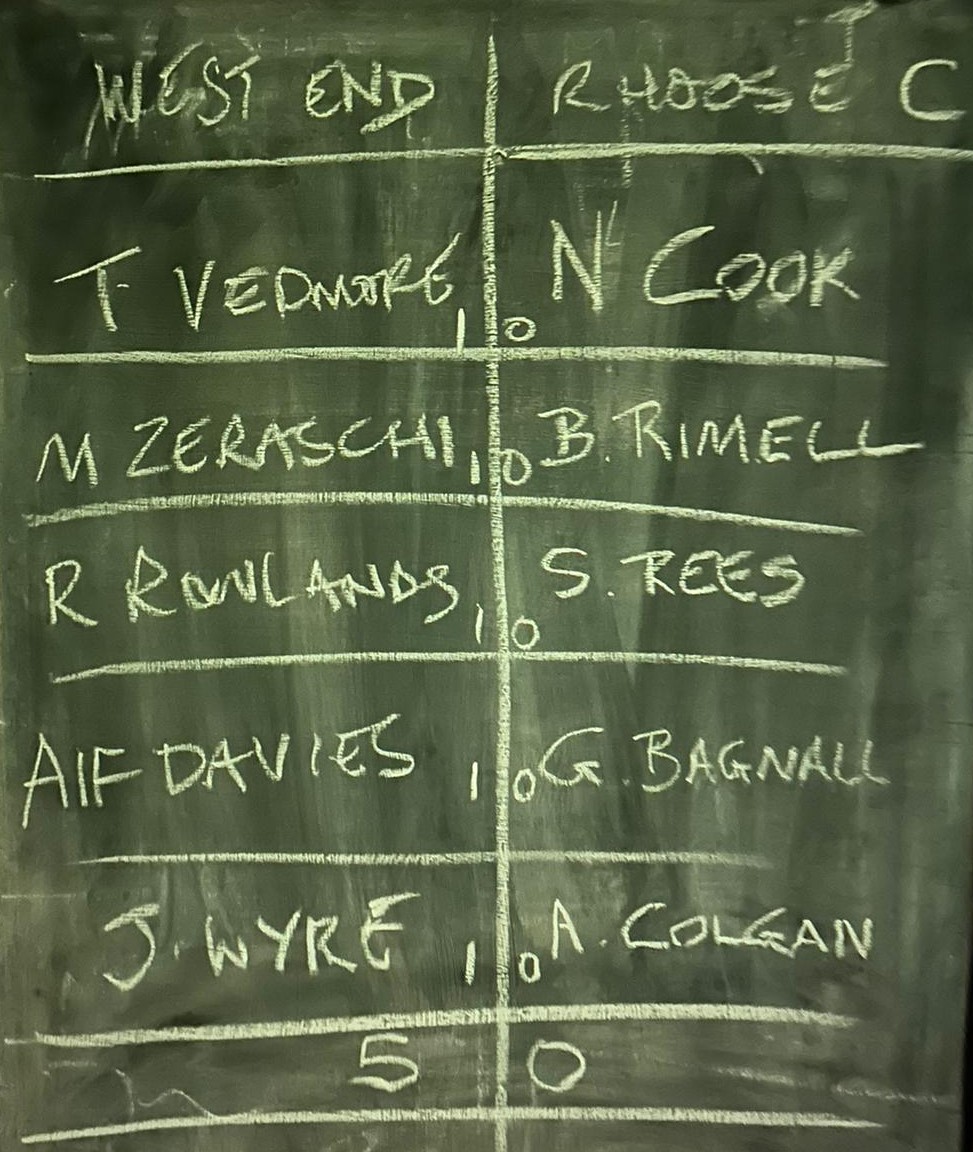 WEST END RHOOSE C
T VEDMORE 1 0 N COOK
M ZERASCHI 1 0 B. RIMELL
R ROWLANDS 1 0 S. REES
AlF DAVIES 1 0 G. BAGNALL
J. WYRE 1 0 A. COLGAN
5 0